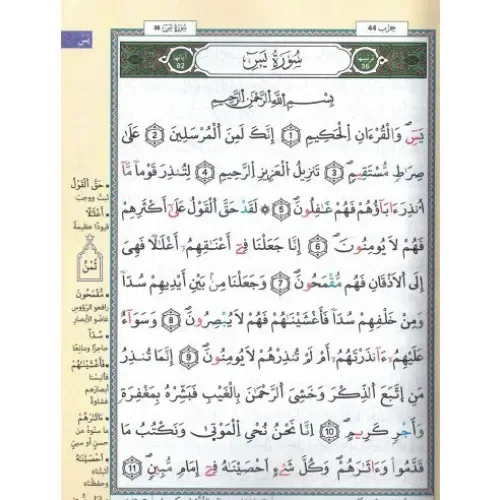 حزب 44
سورة يس 36
يس
ترتيبها 36
سُورَةُ يَسٓ
آياتها 82
بِسْمِ اللَّهِ الرَّحْمَٰنِ الرَّحِيمِ
يَسٓ وَالْقُرْءَانِ الْحَكِيمِ 1 إِنَّكَ لَمِنَ الْمُرْسَلِينَ 2 عَلَىٰ
صِرَٰطٍ مُّسْتَقِيمٍ 3 تَنزِيلُ الْعَزِيزِ الرَّحِيمِ 4 لِتُنذِرَ قَوْماً مَّا
أُنذِرَ ءَابَآؤُهُمْ فَهُمْ غَٰفِلُونَ 5 ۞ لَقَدْ حَقَّ الْقَوْلُ عَلَىٰ أَكْثَرِهِمْ
فَهُمْ لَا يُومِنُونَ 6 إِنَّا جَعَلْنَا فِىٓ أَعْنَٰقِهِمُۥٓ أَغْلَٰلًا فَهِىَ
إِلَى الْأَذْقَانِ فَهُم مُّقْمَحُونَ 7 وَجَعَلْنَا مِنۢ بَيْنِ أَيْدِيهِمْ سُدّاً
وَمِنْ خَلْفِهِمْ سُدّاً فَأَغْشَيْنَٰهُمْ فَهُمْ لَا يُبْصِرُونَ 8 وَسَوَآءٌ
عَلَيْهِمُۥٓ ءَآنذَرْتَهُمُۥٓ أَمْ لَمْ تُنذِرْهُمْ لَا يُومِنُونَ 9 إِنَّمَا تُنذِرُ
مَنِ اِتَّبَعَ الذِّكْرَ وَخَشِىَ الرَّحْمَٰنَ بِالْغَيْبِ فَبَشِّرْهُ بِمَغْفِرَةٍ
وَأَجْرٍ كَرِيمٍ 10 إِنَّا نَحْنُ نُحْىِ الْمَوْتَىٰ وَنَكْتُبُ مَا
قَدَّمُوا۟ وَءَاثَٰرَهُمْ وَكُلَّ شَىْءٍ أَحْصَيْنَٰهُ فِىٓ إِمَامٍ مُّبِينٍ 11
• حَقَّ الْقَوْلُ
ثبت ووجب
• أَغْلَٰلًا
قيودًا عظيمة
ثُمُنْ
• مُّقْمَحُونَ
رافعو الرّؤوس
غاضّو الأبصار
• سُدّاً
حاجزا ومانعًا
• فَأَغْشَيْنَٰهُمْ
فألبسنا
أبصارهم
غشاوة
• ءَاثَٰرَهُمْ
ما سنّوه من
حسن أو سيئ
• أَحْصَيْنَٰهُ
أثبتناه
وحفظناه